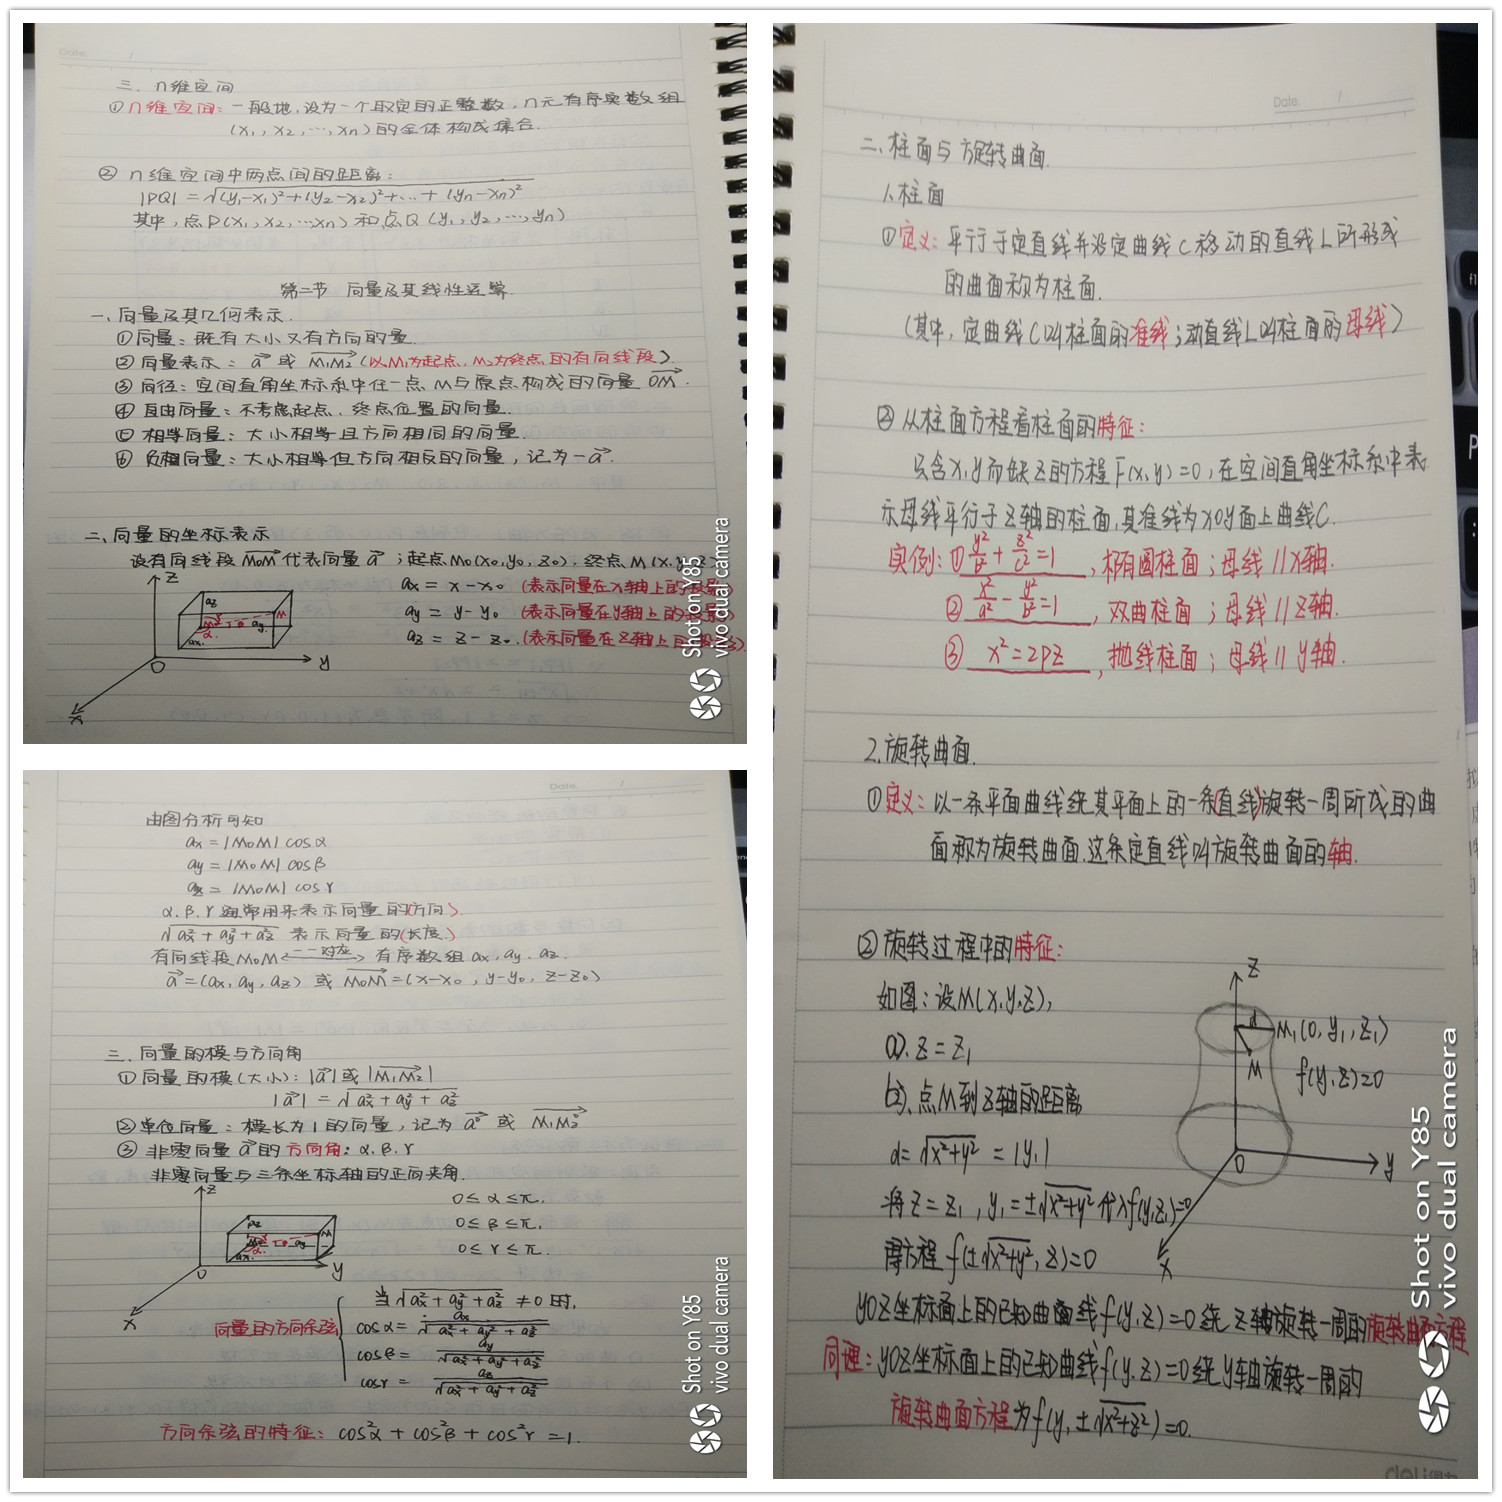 Date. /
三、n维空间
①n维空间：一般地,设为一个取定的正整数,n元有序实数组
(x₁, x₂, …, xn)的全体构成集合.
② n维空间中两点间的距离:
|PQ| = √(y₁-x₁)²+(y₂-x₂)²+…+(yn-xn)²
其中,点P(x₁, x₂, …xn)和点Q(y₁, y₂, …, yn)
第二节 向量及其线性运算.
一、向量及其几何表示.
①向量：既有大小又有方向的量.
②向量表示：a⃗ 或 M₁M₂ (以M₁为起点, M₂为终点的有向线段).
③向径：空间直角坐标系中任一点M与原点构成的向量OM.
④自由向量：不考虑起点、终点位置的向量.
⑤相等向量：大小相等且方向相同的向量.
⑥负相向量：大小相等但方向相反的向量,记为-a⃗.
二、向量的坐标表示
设有向线段M₀M代表向量a⃗；起点M₀(x₀,y₀,z₀),终点M(x,y,z)
ax = x-x₀ (表示向量在x轴上的投影)
ay = y-y₀ (表示向量在y轴上的投影)
az = z-z₀.(表示向量在z轴上的投影)
z
az
M₀
M
α
ay
ax
O
y
x
Shot on Y85
vivo dual camera
Date. /
由图分析可知
ax = |M₀M| cosα
ay = |M₀M| cosβ
az = |M₀M| cosγ
α、β、γ通常用来表示向量的(方向).
√ax²+ay²+az² 表示向量的(长度.)
有向线段M₀M ←一一对应→ 有序数组ax, ay, az.
a⃗=(ax, ay, az) 或 M₀M=(x-x₀, y-y₀, z-z₀)
三、向量的模与方向角
①向量的模(大小): |a⃗|或|M₁M₂|
|a⃗| = √ax²+ay²+az²
②单位向量：模长为1的向量,记为a⃗° 或 M₁M₂°
③ 非零向量a⃗的方向角: α、β、γ
非零向量与三条坐标轴的正向夹角.
0≤α≤π.
0≤β≤π.
0≤γ≤π.
z
az
M₀
M
α
ay
ax
O
y
x
当√ax²+ay²+az² ≠0时,
向量的方向余弦
cosα = ax/√ax²+ay²+az²
cosβ = ay/√ax²+ay²+az²
cosγ = az/√ax²+ay²+az²
方向余弦的特征: cos²α+cos²β+cos²γ=1.
Shot on Y85
vivo dual camera
Date. /
二、柱面与旋转曲面.
1.柱面
①定义：平行于定直线并沿定曲线C移动的直线L所形成
的曲面称为柱面.
(其中,定曲线C叫柱面的准线；动直线L叫柱面的母线)
②从柱面方程看柱面的特征:
只含x,y而缺z的方程F(x,y)=0,在空间直角坐标系中表
示母线平行于z轴的柱面,其准线为xoy面上曲线C.
实例:① y²/b²+z²/c²=1 ,椭圆柱面；母线∥x轴.
② x²/a²-y²/b²=1 ,双曲柱面；母线∥z轴.
③ x²=2pz ,抛线柱面；母线∥y轴.
2.旋转曲面.
①定义：以一条平面曲线绕其平面上的一条(直线)旋转一周所成的曲
面称为旋转曲面.这条定直线叫旋转曲面的轴.
②旋转过程中的特征:
如图：设M(x,y,z),
a). z=z₁
b).点M到z轴的距离
d=√x²+y² =|y₁|
将z=z₁, y₁=±√x²+y²代入f(y₁,z₁)=0
得方程f(±√x²+y², z)=0
z
d
M₁(0, y₁, z₁)
M
f(y,z)=0
O
y
x
yOz坐标面上的已知曲线f(y,z)=0绕z轴旋转一周的旋转曲面方程
同理：yOz坐标面上的已知曲线f(y,z)=0绕y轴旋转一周的
旋转曲面方程为f(y, ±√x²+z²)=0.
Shot on Y85
vivo dual camera
deli得力